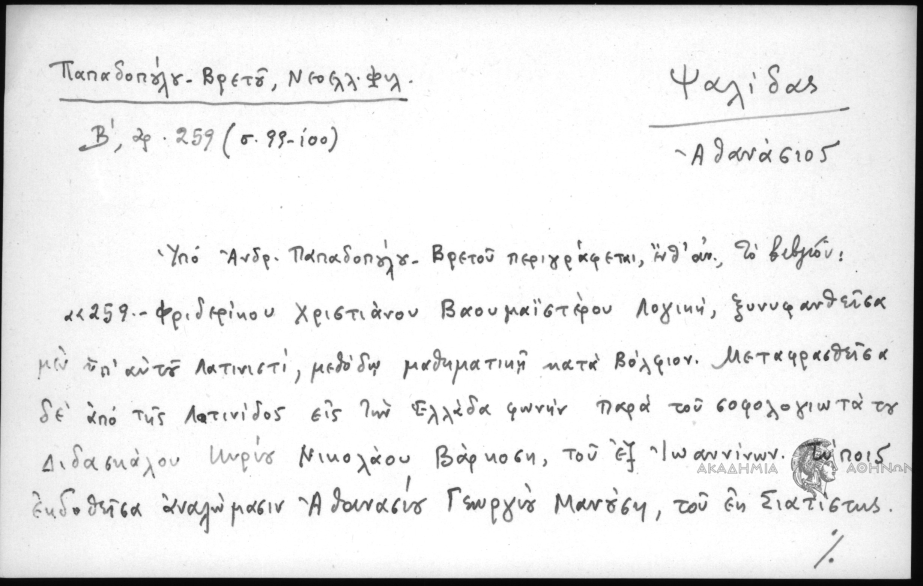 Παπαδοπούλου-Βρετοῦ, Νεοελλ. Φιλ.
Ψαλίδας
Β', ἀρ. 259 (σ. 99-100)
Ἀθανάσιος
Ὑπό Ἀνδρ. Παπαδοπούλου-Βρετοῦ περιγράφεται, ἔνθ' ἀν., τό βιβλίον:
«259.- Φριδερίκου Χριστιάνου Βαουμαϊστέρου Λογική, ξυνυφανθεῖσα
μέν ὑπ' αὐτοῦ Λατινιστί, μεθόδῳ μαθηματικῇ κατά Βόλφιον. Μεταφρασθεῖσα
δέ ἀπό τῆς Λατινίδος εἰς τήν Ἑλλάδα φωνήν παρά τοῦ σοφολογιωτάτου
Διδασκάλου Κυρίου Νικολάου Βάρκοση, τοῦ ἐξ Ἰωαννίνων. Τύποις
ἐκδοθεῖσα ἀναλώμασιν Ἀθανασίου Γεωργίου Μανούση, τοῦ ἐκ Σιατίστης.
ΑΚΑΔΗΜΙΑ ΑΘΗΝΩΝ
./.